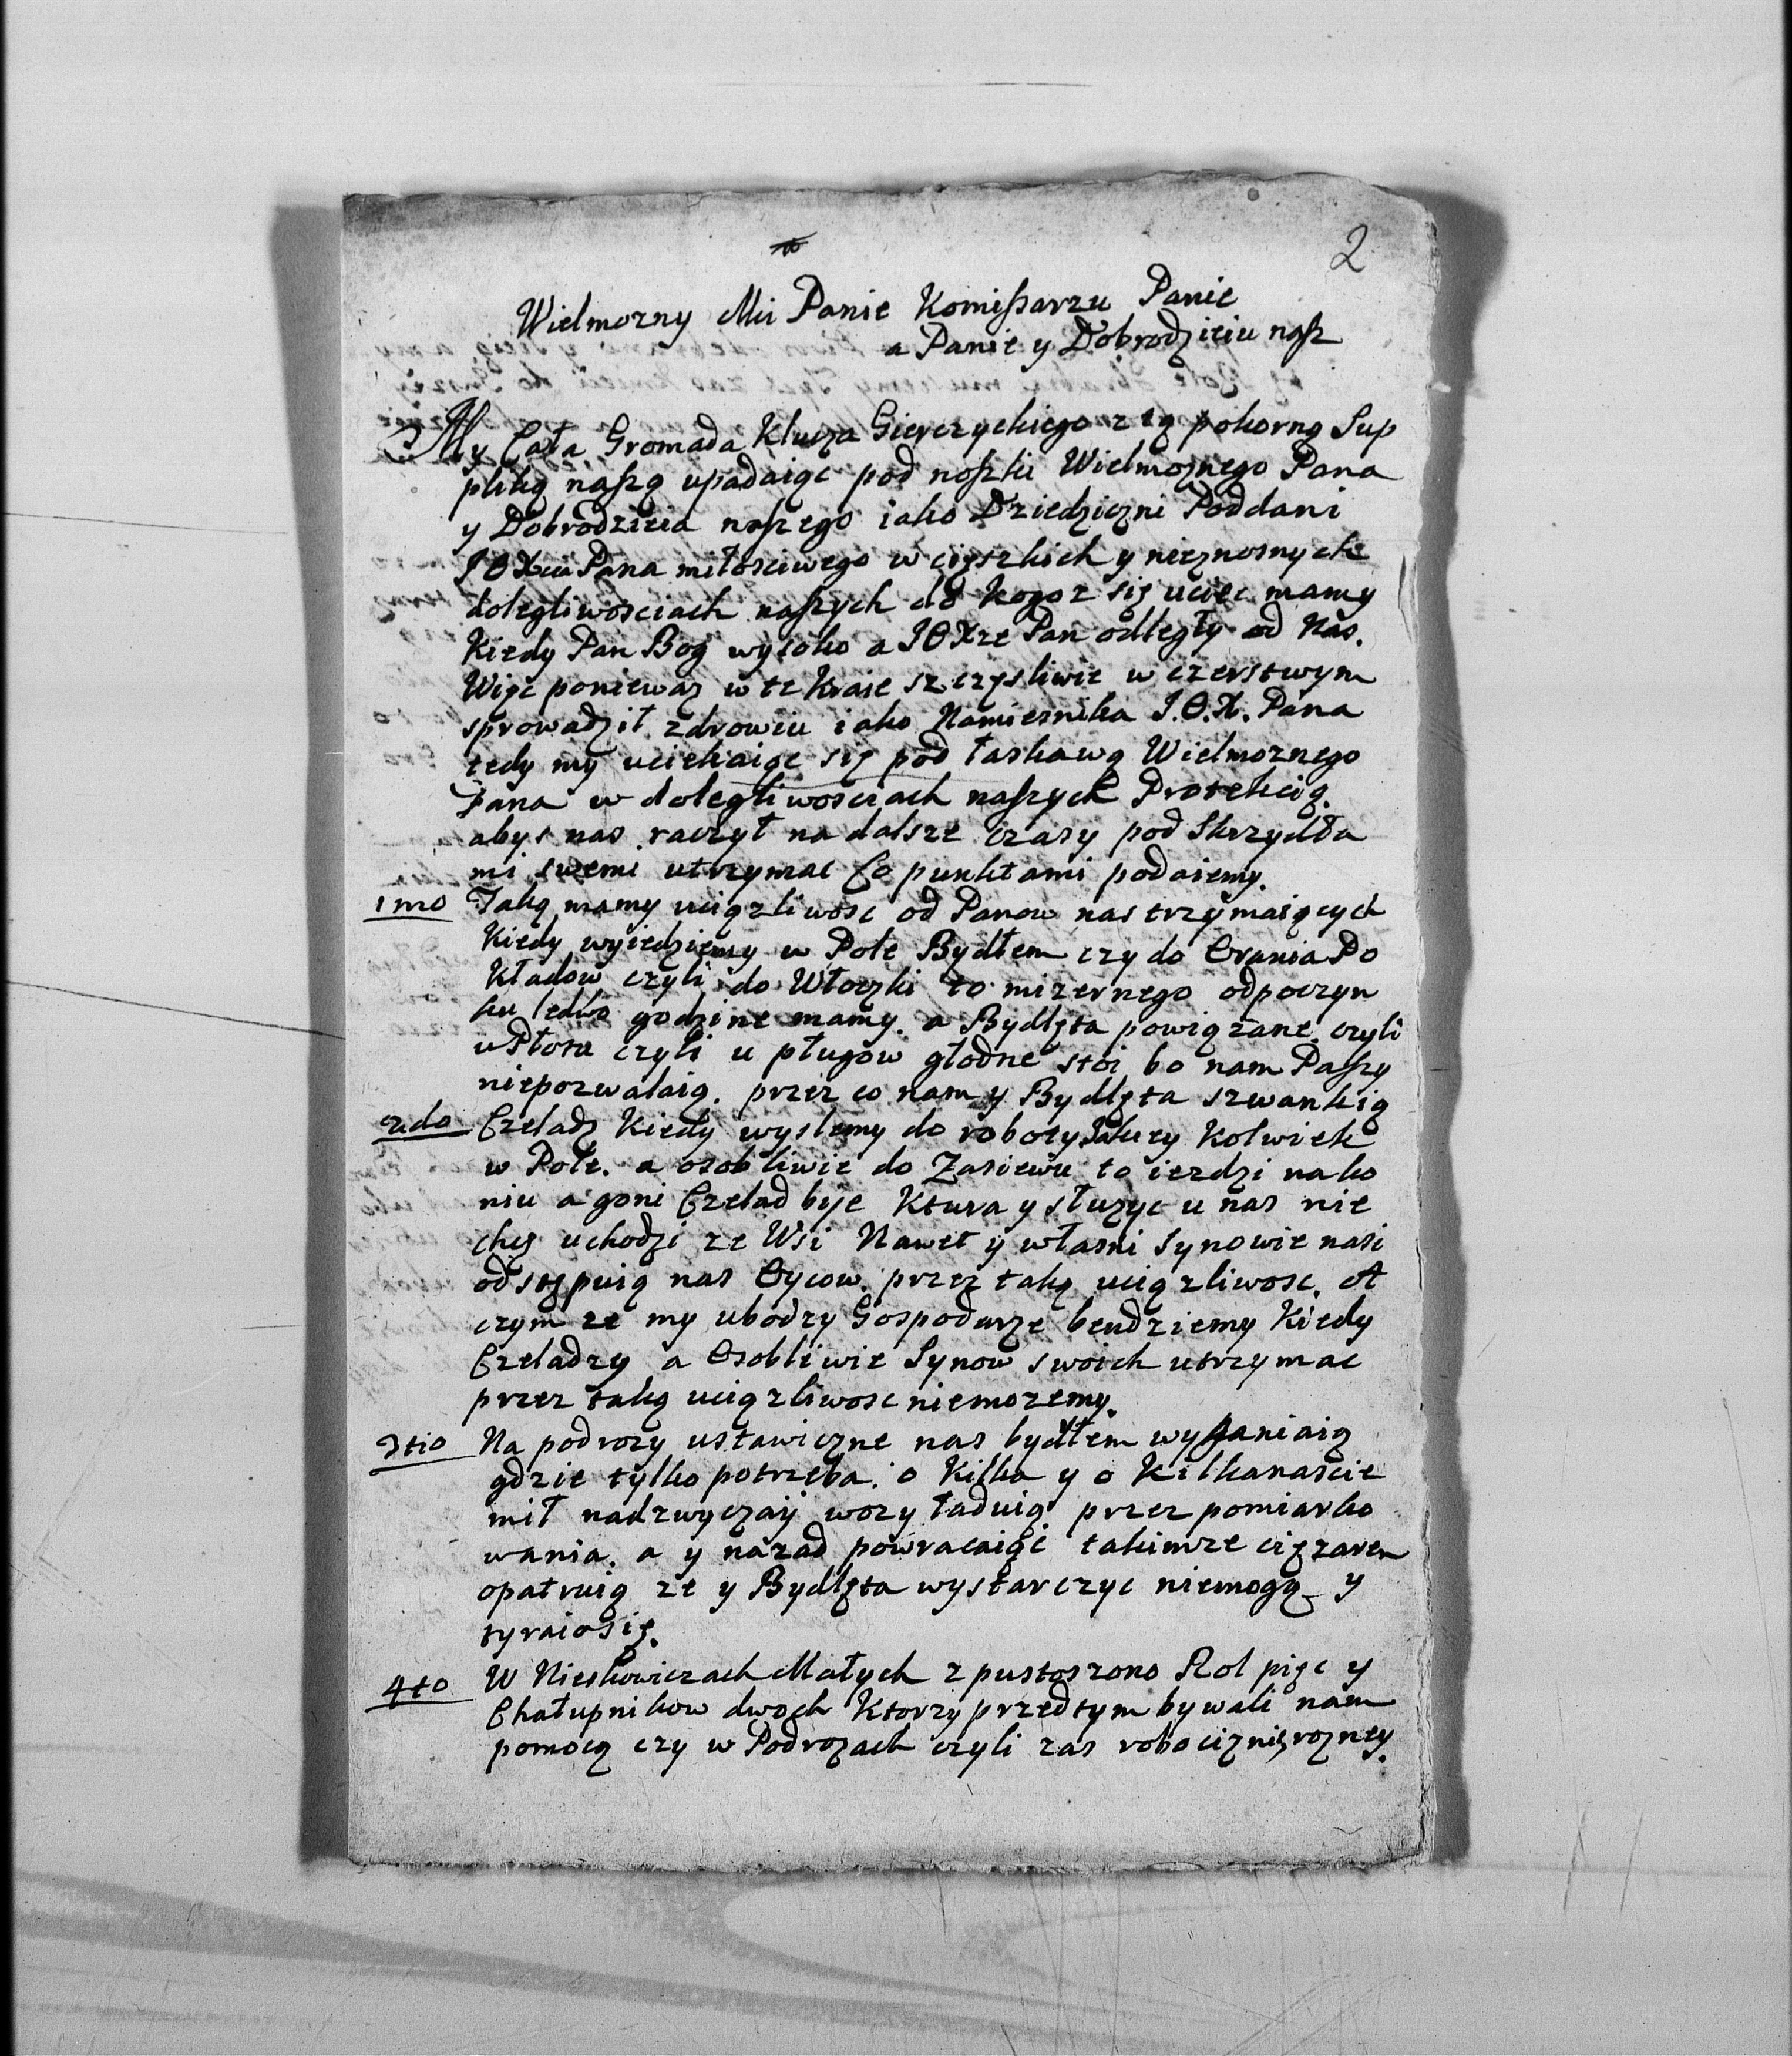 2
Wielmozny Mci Panie Komissarzu Panie
a Panie y Dobrodzieiu nasz
My Cała Gromada Klucza Gierczyckiego z tą pokorną Sup
pliką naszą upadaiąc pod noszki Wielmoznego Pana
y Dobrodzieia naszego iako Dziedziczni Poddani
J O Xcia Pana miłosciwego w cięszkich y nieznosnych
dolegliwosciach naszych do kogoz się uciec mamy
Kiedy Pan Bog wysoko a J O Xze Pan odległy od Nas.
Więc poniewaz w te Kraie szczęsliwie w czerstwym
sprowadził zdrowiu iako Namiesnika J. O. X. Pana
tedy my uciekaiąc się pod łaskawą Wielmoznego
Pana w dolegliwosciach naszych Protekcią.
abys nas raczył na dalsze czasy pod Skrzydła
mi swemi utrzymac Co punktami podaiemy.
1mo Taką mamy uciązliwosc od Panow nas trzymaiących
Kiedy wyiedziemy w Pole Bydłem czy do Orania Po
kładow czyli do Włoczki to mizernego odpoczyn
ku ledwo godzine mamy. a Bydlęta powiązane czyli
u Płota czyli u pługow głodne stoi bo nam Paszy
niepozwalaią. przez co nam y Bydlęta szwankią
2do Czeladz Kiedy wyslemy do roboty Jakiey Kolwiek
w Pole. a osobliwie do Zasiewu to iezdzi na ko
niu a goni Czelad bije Ktura y słuzyc u nas nie
chcę uchodzi ze Wsi Nawet y własni Synowie nasi
odstępuią nas Oycow. przez taką uciązliwosc. A
czym ze my ubodzy Gospodarze bendziemy Kiedy
Czeladzy a Osobliwie Synow swoich utrzymac
przez taką uciązliwosc niemozemy.
3tio Na podrozy ustawiczne nas bydłem wyganiaią
gdzie tylko potrzeba. o Kilka y o Kilkanascie
mil nadzwyczay wozy ładuią przez pomiarko
wania. a y nazad powracaiąc takimze cięzarem
opatruią ze y Bydlęta wystarczyc niemogą y
tyraiosię.
4to W Nieskowiczach Małych zpustoszono Rol pięc y
Chałupnikow dwoch Ktorzy przedtym bywali nam
pomocą czy w Podrozach czyli zas robociznię rozney.